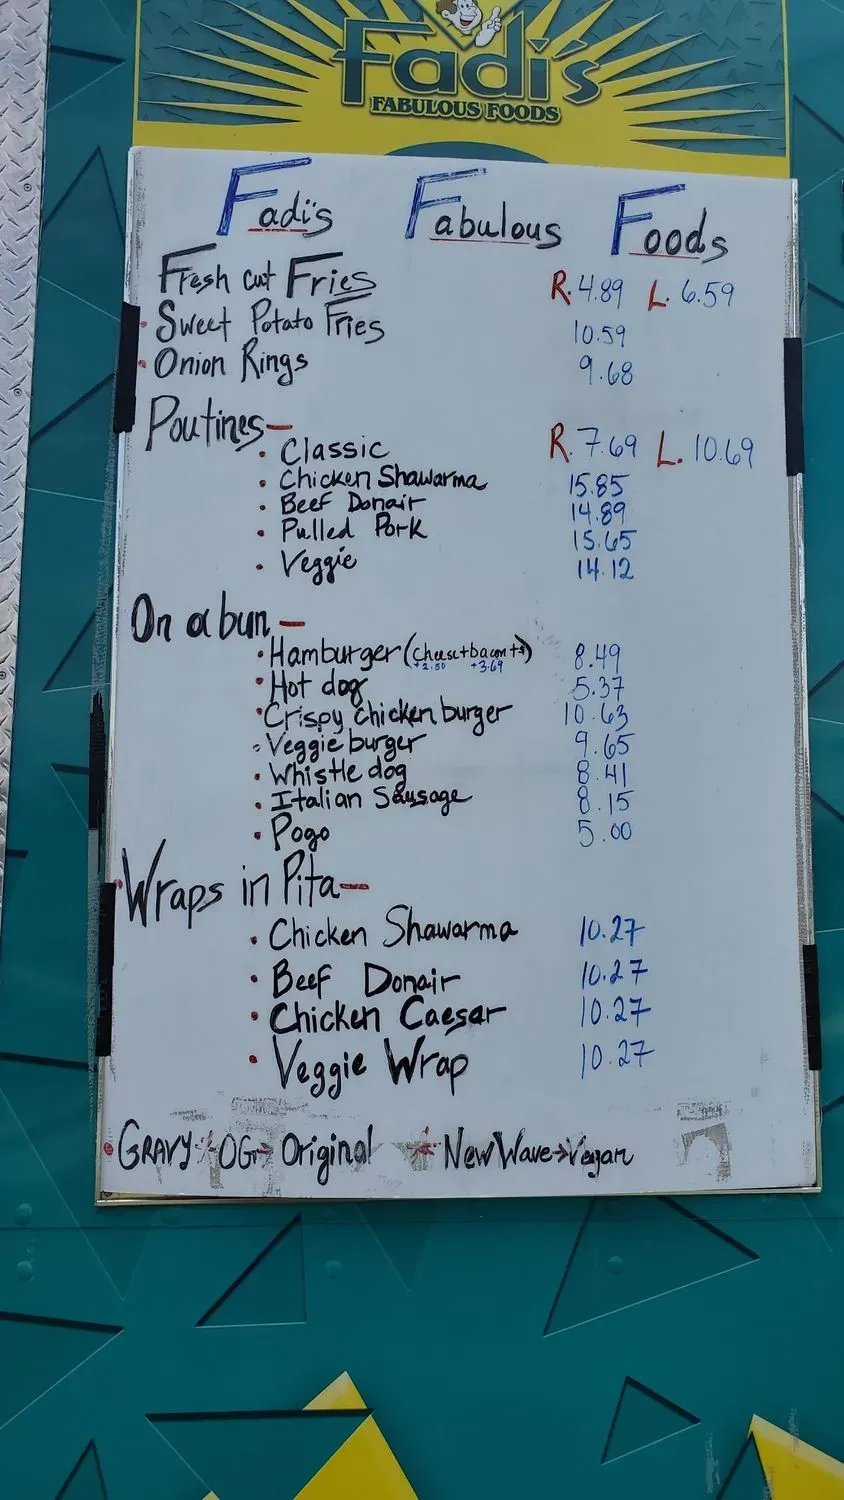 Fadi's
FABULOUS FOODS
Fadi's Fabulous Foods
Fresh cut Fries R. 4.89 L. 6.59
• Sweet Potato Fries 10.59
• Onion Rings 9.68
Poutines—
• Classic R. 7.69 L. 10.69
• Chicken Shawarma 15.85
• Beef Donair 14.89
• Pulled Pork 15.65
• Veggie 14.12
On a bun —
• Hamburger (cheese+bacon+$) 8.49
+2.50 +3.69
• Hot dog 5.37
• Crispy chicken burger 10.63
• Veggie burger 9.65
• Whistle dog 8.41
• Italian Sausage 8.15
• Pogo 5.00
• Wraps in Pita—
• Chicken Shawarma 10.27
• Beef Donair 10.27
• Chicken Caesar 10.27
• Veggie Wrap 10.27
• GRAVY * OG→ Original * New Wave→Vegan